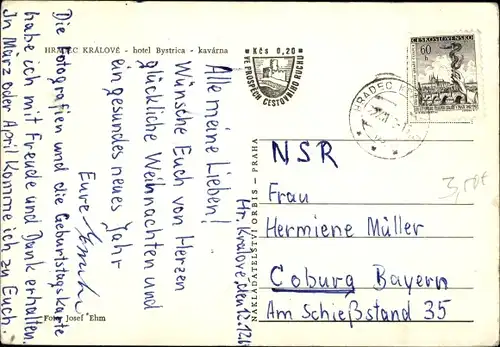 HRADEC KRÁLOVÉ - hotel Bystrica - kavárna
Kčs 0,20
VE PROSPĚCH CESTOVNÍHO RUCHU
ČESKOSLOVENSKO
60
h
HRADEC
Hr. Králové, den 12.12.
Alle meine Lieben!
Wünsche Euch von Herzen
glückliche Weihnachten und
ein gesundes neues Jahr
Eure
Die Fotografien und die Geburtstagskarte
habe ich mit Freude und Dank erhalten.
In März oder April komme ich zu Euch.
NAKLADATELSTVÍ ORBIS - PRAHA
Foto Josef Ehm
NSR
Frau
Hermiene Müller
Coburg Bayern
Am Schießstand 35